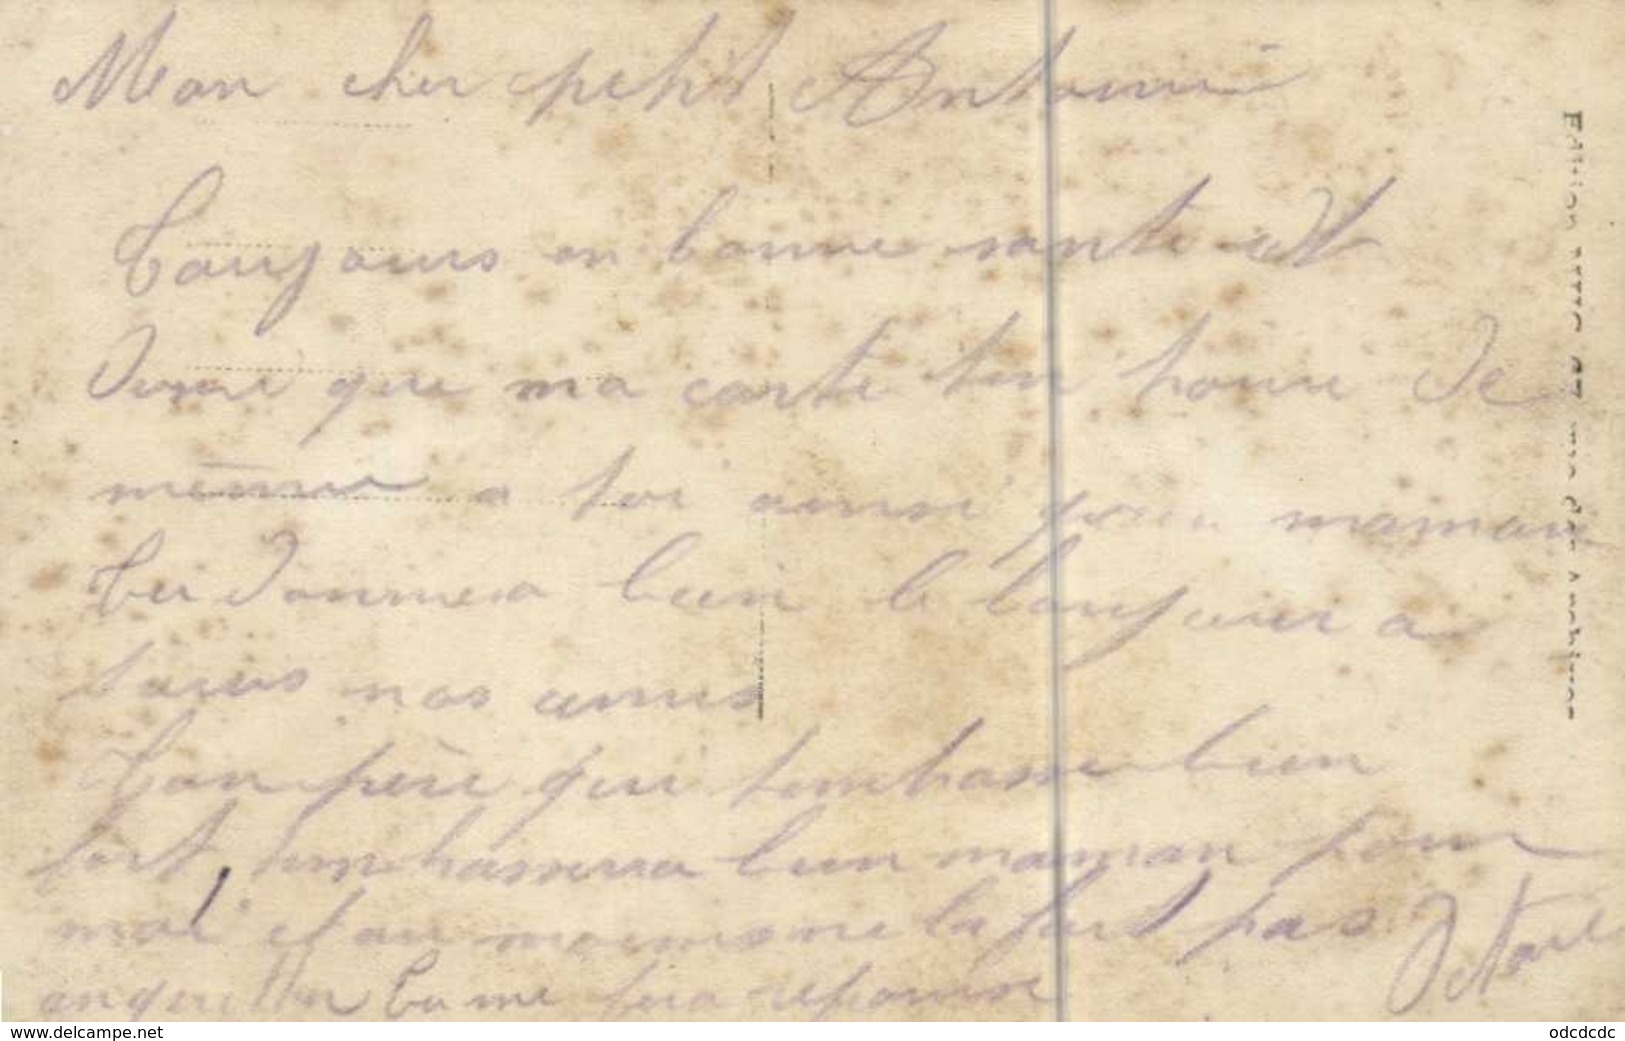 Mon cher petit Antonin
Toujours en bonne santé et
desire que ma carte ten trouve de
même a toi ainsi pour maman
tu donnera bien le bonjour a
tous nos amis
Ton père qui tembrasse bien
fort, tembrassera bien maman pour
moi et au moins ne la fait pas
tu me fera reponse
Octave
www.delcampe.net
odcdcdc